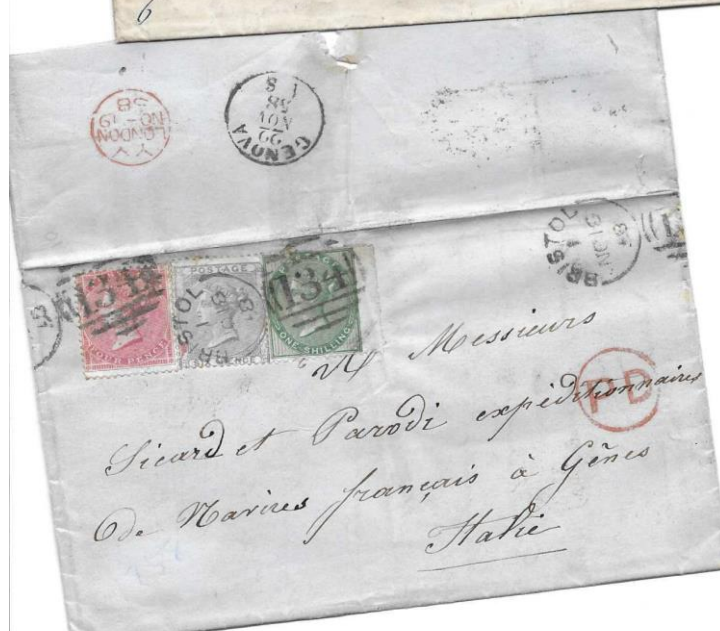 6
YY
LONDON
NO 19
58
GENOVA
22
NOV
58
8 1
BRISTOL
1
NO 18
134
134
FOUR PENCE
POSTAGE
BRISTOL
1
NO 18
ONE SHILLING
PD
Messieurs
Sicard et Parodi expéditionnaires
De Navires français à Gênes
Italie